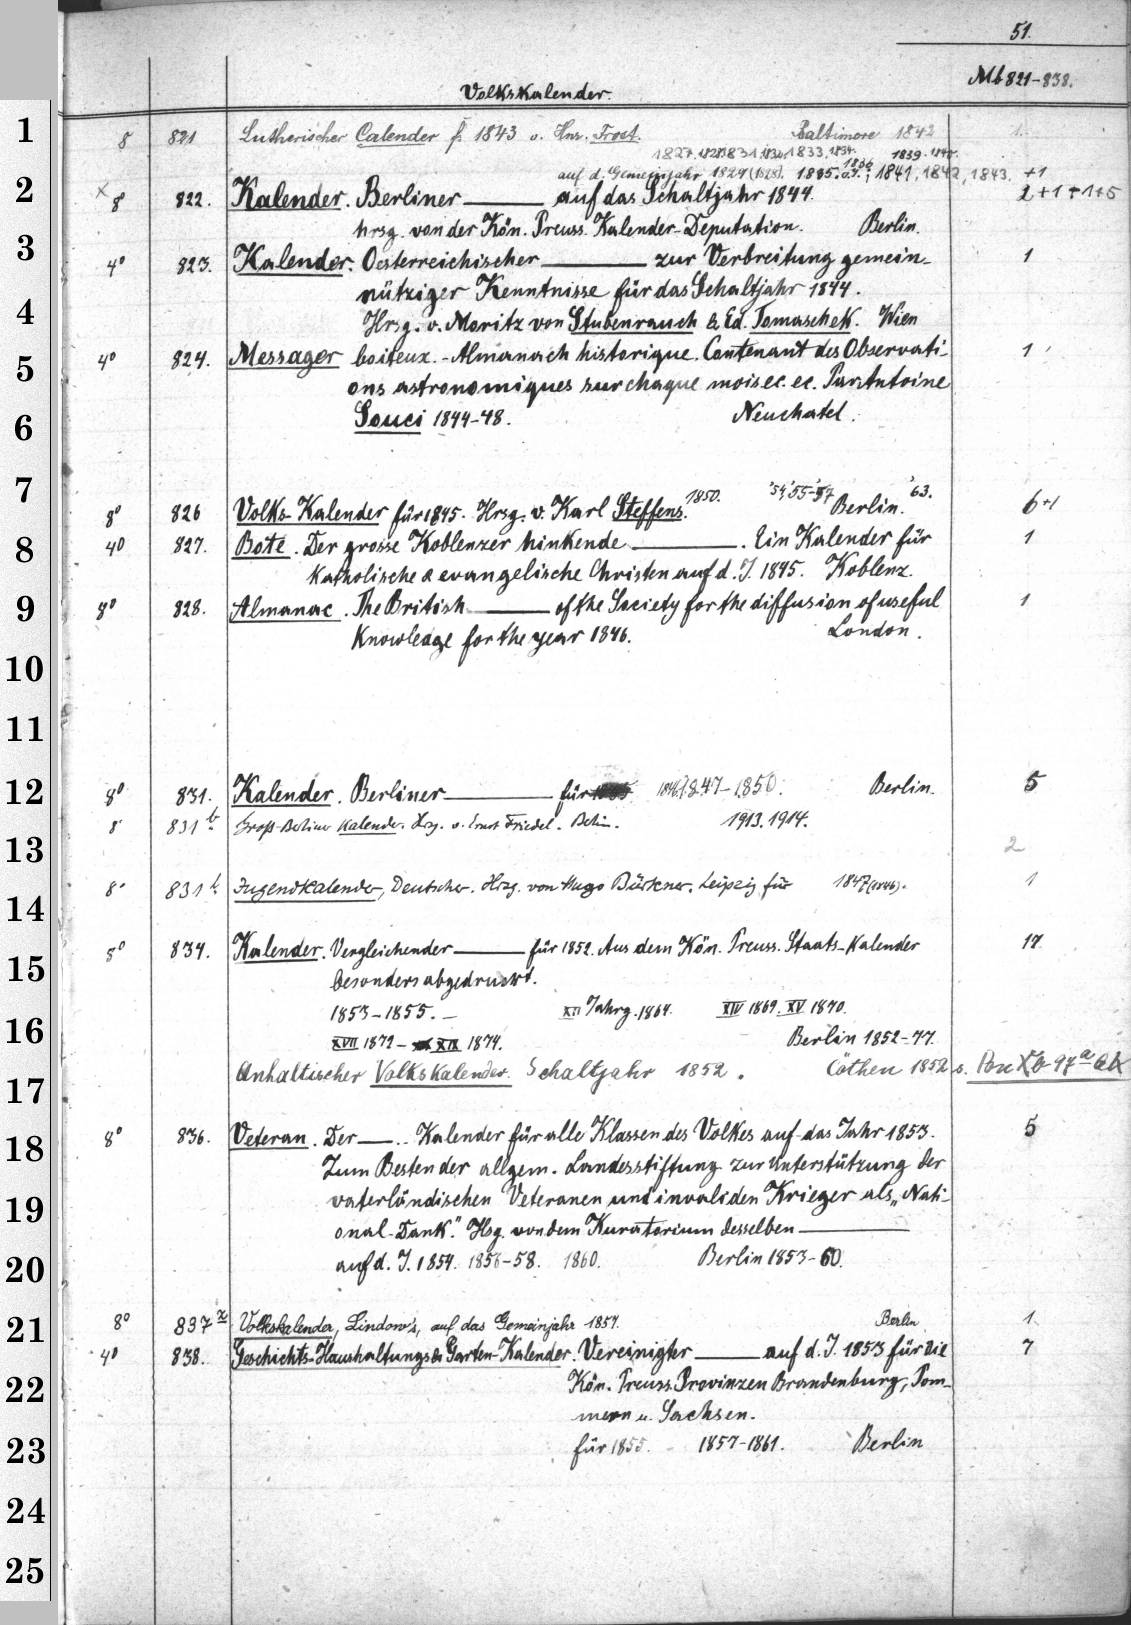 51.
Mb 821-838.
Volkskalender.
1
8 821 Lutherischer Calender f. 1843 v. Hnr. Trost. Baltimore 1842 1.
1827. 1831 1833. 1834. 1839. 1840.
auf d. Gemeinjahr 1829 1835. 1836 1841, 1842, 1843. +1
2
x 8 822. Kalender. Berliner — auf das Schaltjahr 1844. 2+1+1+5
hrsg. von der Kön. Preuss. Kalender-Deputation. Berlin.
3
4° 823. Kalender. Oesterreichischer — zur Verbreitung gemein- 1
nütziger Kenntnisse für das Schaltjahr 1844.
4
Hrsg. v. Moritz von Stubenrauch & Ed. Tomaschek. Wien
5
4° 824. Messager boiteux. - Almanach historique. Contenant des Observati- 1
ons astronomiques sur chaque mois ec. ec. Par Antoine
6
Souci 1844-48. Neuchatel.
7
8° 826 Volks-Kalender für 1845. Hrsg. v. Karl Steffens. 1850. '54 '55-'57 Berlin. '63. 6+1
8
4° 827. Bote. Der grosse Koblenzer hinkende — . Ein Kalender für 1
katholische & evangelische Christen auf d. J. 1845. Koblenz.
9
8° 828. Almanac. The British — of the Society for the diffusion of useful 1
Knowledge for the year 1846. London.
10
11
12
8° 831. Kalender. Berliner — für 1846. 1847-1850. Berlin. 5
8° 831 b. Groß-Berliner Kalender. Hrsg. v. Ernst Friedel. Berlin. 1913. 1914.
13
2
14
8° 831 k. Jugendkalender, Deutscher. Hrsg. von Hugo Bürkner. Leipzig für 1847 (1846). 1
8° 834. Kalender. Vergleichender — für 1852. Aus dem Kön. Preuss. Staats-Kalender 17
15
besonders abgedruckt.
1853-1855. – XII Jahrg. 1864. XIV 1869. XV 1870.
16
XVII 1872 - XIX 1874. Berlin 1852-77.
Anhaltischer Volkskalender. Schaltjahr 1852. Cöthen 1852 s. Pon Xb 97a
17
18
8° 836. Veteran. Der — . Kalender für alle Klassen des Volkes auf das Jahr 1853. 5
Zum Besten der allgem. Landesstiftung zur Unterstützung der
19
vaterländischen Veteranen und invaliden Krieger als „Nati-
onal-Dank." Hsg. von dem Kuratorium desselben —
20
auf d. J. 1854. 1856-58. 1860. Berlin 1853-60.
21
8° 837 z Volkskalender, Lindow's, auf das Gemeinjahr 1857. Berlin 1.
4° 838. Geschichts-Haushaltungs & Garten-Kalender. Vereinigter — auf d. J. 1853 für die 7
22
Kön. Preuss. Provinzen Brandenburg, Pom-
mern u. Sachsen.
23
für 1855. 1857-1861. Berlin
24
25